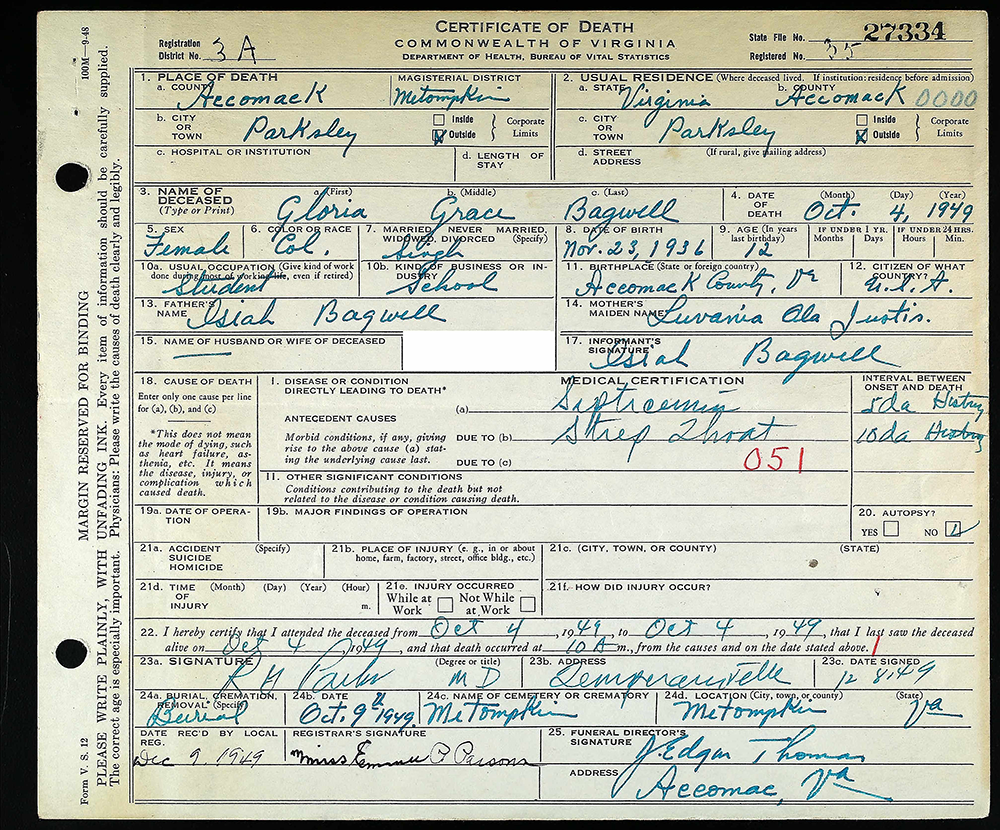 CERTIFICATE OF DEATH
COMMONWEALTH OF VIRGINIA
DEPARTMENT OF HEALTH, BUREAU OF VITAL STATISTICS
Registration District No. 3A
State File No. 27334
Registered No. 35
1. PLACE OF DEATH
a. COUNTY Accomack
MAGISTERIAL DISTRICT Metompkin
2. USUAL RESIDENCE (Where deceased lived. If institution: residence before admission)
a. STATE Virginia
b. COUNTY Accomack 0000
b. CITY OR TOWN Parksley
Inside
Outside
Corporate Limits
c. CITY OR TOWN Parksley
Inside
Outside
Corporate Limits
c. HOSPITAL OR INSTITUTION
d. LENGTH OF STAY
d. STREET ADDRESS (If rural, give mailing address)
3. NAME OF DECEASED (Type or Print)
a. (First) Gloria
b. (Middle) Grace
c. (Last) Bagwell
4. DATE OF DEATH (Month) (Day) (Year) Oct. 4, 1949
5. SEX Female
6. COLOR OR RACE Col.
7. MARRIED, NEVER MARRIED, WIDOWED, DIVORCED (Specify) Single
8. DATE OF BIRTH Nov. 23, 1936
9. AGE (In years last birthday) 12
IF UNDER 1 YR. Months Days
IF UNDER 24 HRS. Hours Min.
10a. USUAL OCCUPATION (Give kind of work done during most of working life, even if retired) Student
10b. KIND OF BUSINESS OR INDUSTRY School
11. BIRTHPLACE (State or foreign country) Accomack County, Va
12. CITIZEN OF WHAT COUNTRY? U.S.A.
13. FATHER'S NAME Isiah Bagwell
14. MOTHER'S MAIDEN NAME Luvania Ola Justis.
15. NAME OF HUSBAND OR WIFE OF DECEASED
17. INFORMANT'S SIGNATURE Isiah Bagwell
18. CAUSE OF DEATH
Enter only one cause per line for (a), (b), and (c)
*This does not mean the mode of dying, such as heart failure, asthenia, etc. It means the disease, injury, or complication which caused death.
MEDICAL CERTIFICATION
I. DISEASE OR CONDITION DIRECTLY LEADING TO DEATH*
(a) Septicemia
ANTECEDENT CAUSES
Morbid conditions, if any, giving rise to the above cause (a) stating the underlying cause last.
DUE TO (b) Strep Thoat
DUE TO (c)
051
INTERVAL BETWEEN ONSET AND DEATH
5 da History
10 da History
II. OTHER SIGNIFICANT CONDITIONS
Conditions contributing to the death but not related to the disease or condition causing death.
19a. DATE OF OPERATION
19b. MAJOR FINDINGS OF OPERATION
20. AUTOPSY?
YES NO
21a. ACCIDENT SUICIDE HOMICIDE (Specify)
21b. PLACE OF INJURY (e. g., in or about home, farm, factory, street, office bldg., etc.)
21c. (CITY, TOWN, OR COUNTY) (STATE)
21d. TIME OF INJURY (Month) (Day) (Year) (Hour) m.
21e. INJURY OCCURRED
While at Work
Not While at Work
21f. HOW DID INJURY OCCUR?
22. I hereby certify that I attended the deceased from Oct 4, 1949, to Oct 4, 1949, that I last saw the deceased
alive on Oct 4, 1949, and that death occurred at 10 A m., from the causes and on the date stated above.
23a. SIGNATURE (Degree or title) M D
23b. ADDRESS Temperanceville
23c. DATE SIGNED 12 8 49
24a. BURIAL, CREMATION, REMOVAL (Specify) Burial
24b. DATE Oct. 9th 1949
24c. NAME OF CEMETERY OR CREMATORY Metompkin
24d. LOCATION (City, town, or county) (State) Metompkin Va
DATE REC'D BY LOCAL REG. Dec 9, 1949
REGISTRAR'S SIGNATURE Miss Emma P. Parsons
25. FUNERAL DIRECTOR'S SIGNATURE J. Edgar Thomas
ADDRESS Accomac, Va
MARGIN RESERVED FOR BINDING
PLEASE WRITE PLAINLY, WITH UNFADING INK. Every item of information should be carefully supplied.
The correct age is especially important. Physicians: Please write the causes of death clearly and legibly.
Form V. S. 12
100M—9-48